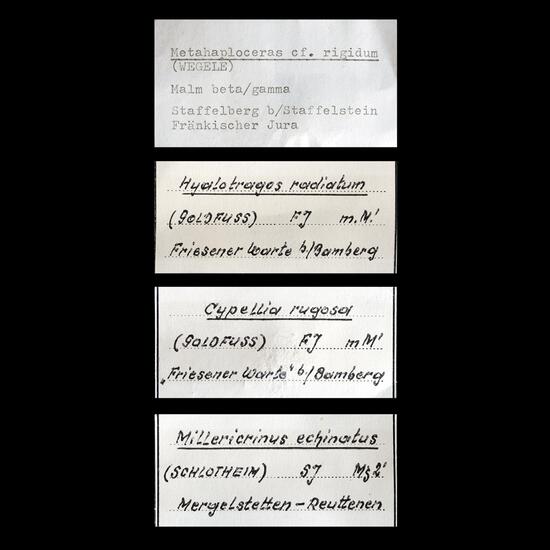 Metahaploceras cf. rigidum
(WEGELE)
Malm beta/gamma
Staffelberg b/Staffelstein
Fränkischer Jura
Hyalotragos radiatum
(GOLDFUSS) FJ m.M.'
Friesener Warte b/Bamberg
Cypellia rugosa
(GOLDFUSS) FJ mM'
„Friesener Warte“ b/Bamberg
Millericrinus echinatus
(SCHLOTHEIM) SJ Mξ2'
Mergelstetten - Reuttenen